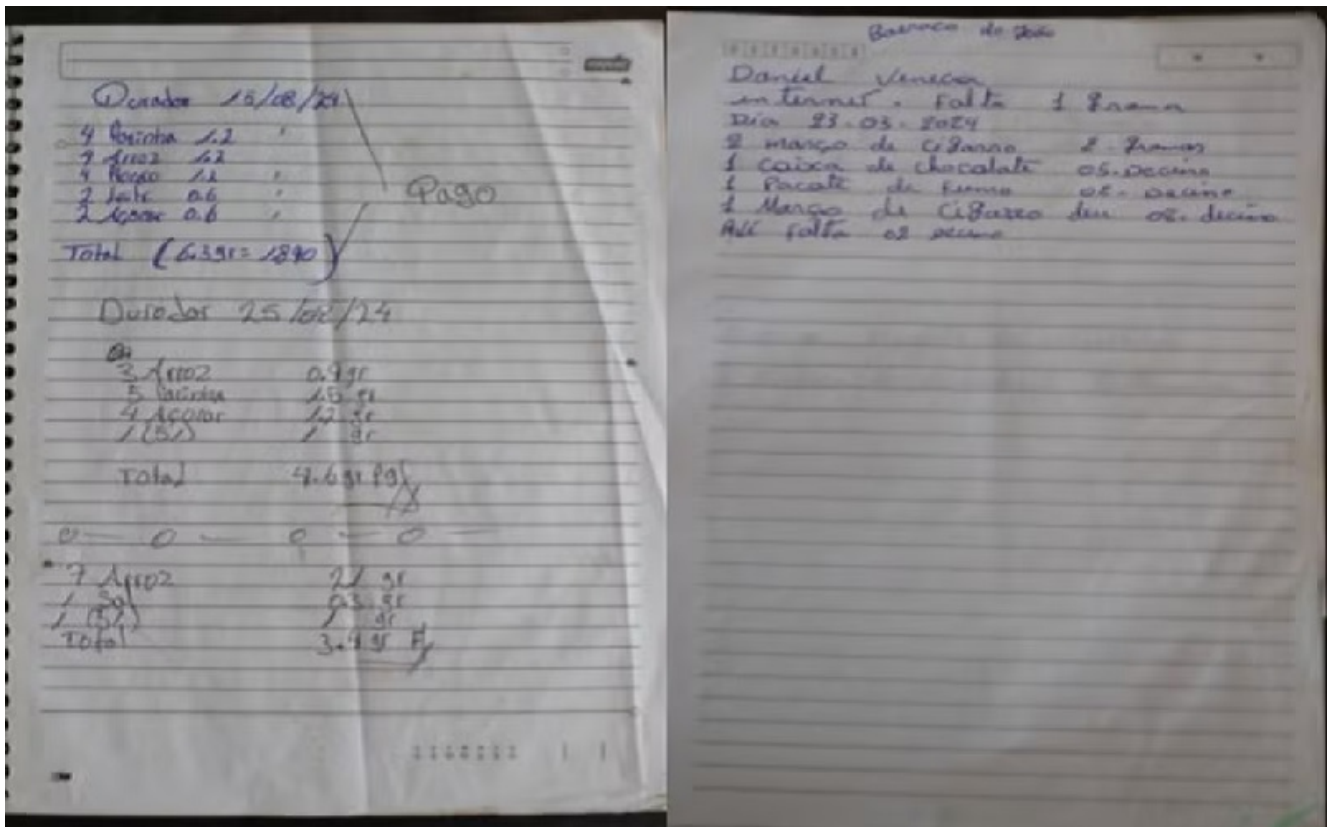 Durador 15/08/24
4 Farinha 1.2 "
4 Arroz 1.2
4 1.2 "
2 Leite 0.6 "
2 Açocar 0.6 "
Pago
Total (6.3gr = 1890)
Durador 25/08/24
3 Arroz 0.9 gr
5 Farinha 1.5 gr
4 Açocar 1.2 gr
1 (51) 1 gr
Total 4.6 gr Pg
7 Arroz 2.1 gr
1 Sal 0.3 gr
1 (51) 1 gr
Total 3.4 gr
Barraco do João
Daniel
internet. Falta 1 Grama
Dia 23-03-2024
2 março de Cigarro 2 Gramas
1 Caixa de chocalate 05. Decimo
1 Pacate de Fumo 08. Decimo
1 Março de Cigarro deu 08. decimo
Falta 02 Decimo